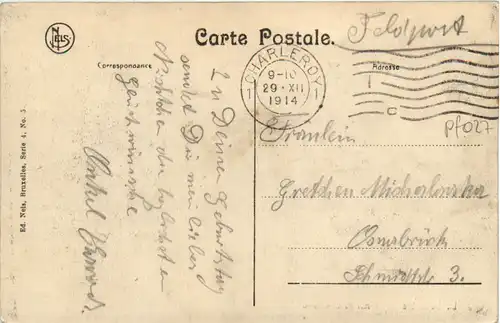 NELS
Carte Postale.
Feldpost
Correspondance
Adresse
CHARLEROY
1 1
9-10
29·XII
1914
C
Pf027
Fräulein
Gretchen
Osnabrück
3.
Zu Deinem Geburtstag
sendet Dir mein lieber
die herzlichsten
Glückwünsche
Onkel
Ed. Nels, Bruxelles, Serie 4, No. 5.